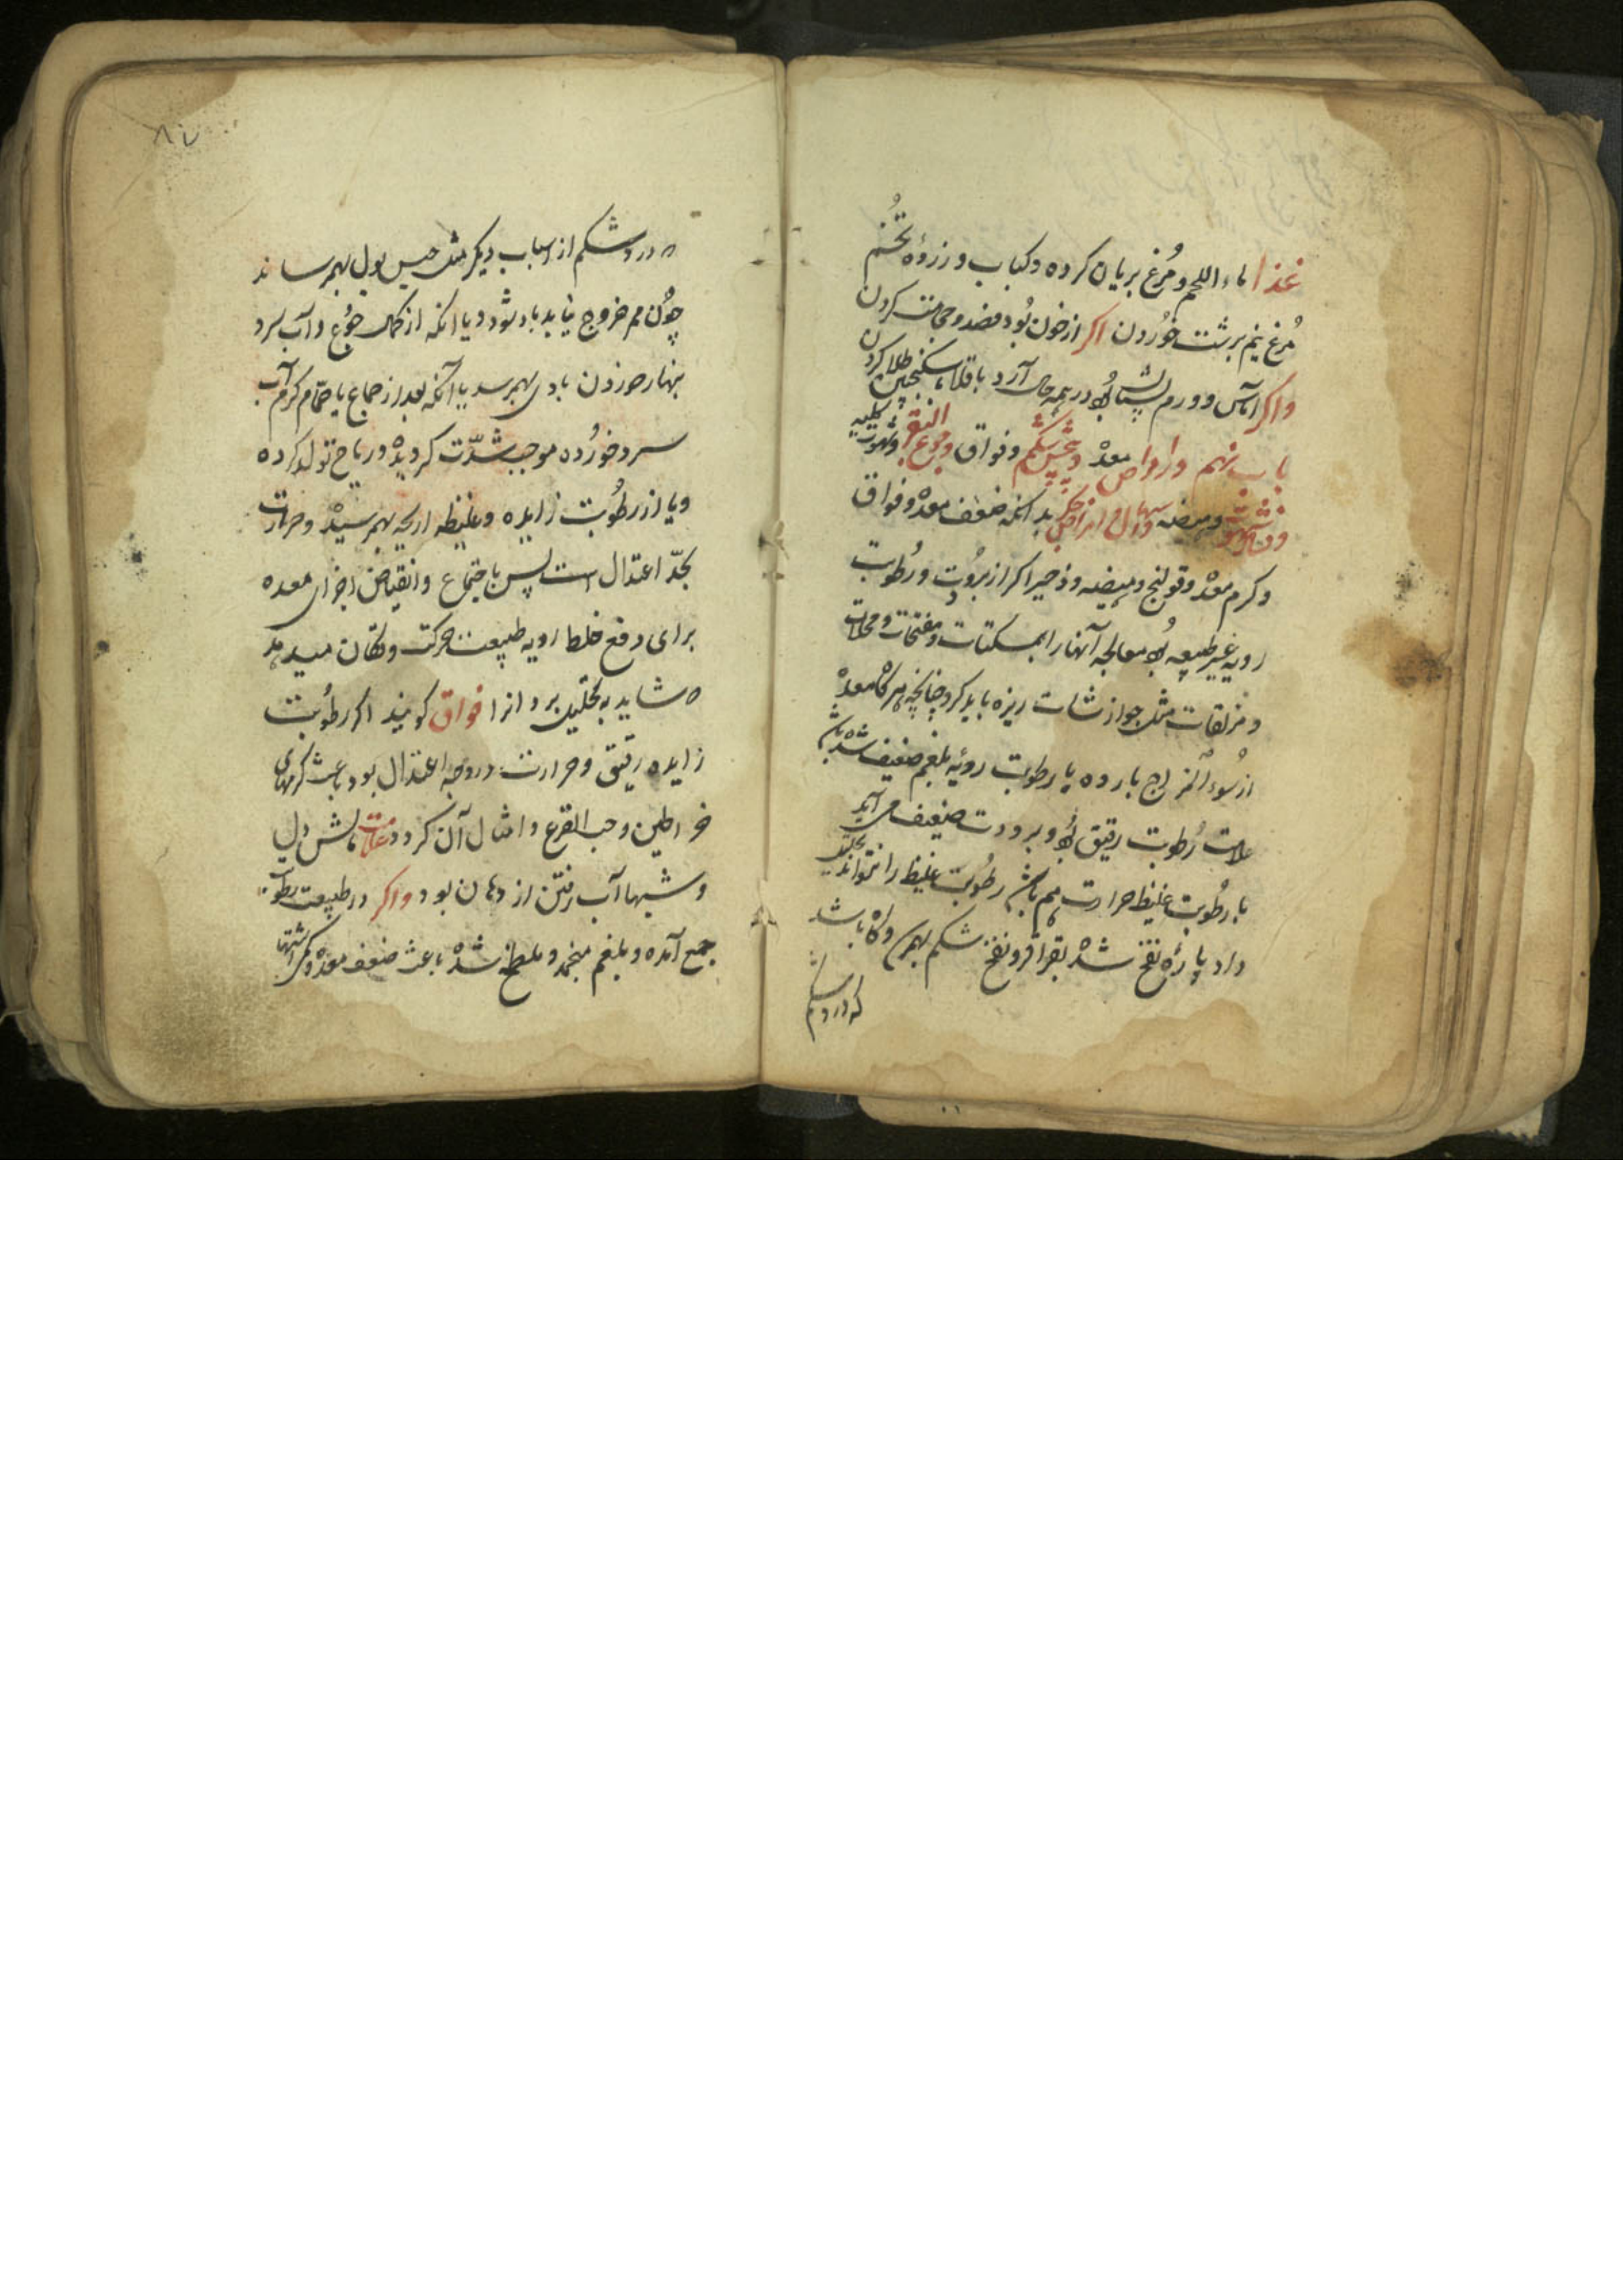 غذا ماء اللحم و مُرغ بریان کرده و کباب و زرده تخم
مُرغ نیم برشت خوردن اکر از خون بُود فصد و حجامت کردن
واکر اماس و ورم پستان بُود در همه حال آرد باقلا با سکنجبین طلا کردن
باب نهم در امراض معده و پیچش شکم و فواق و جوع البقر و شهوت کلبیه
و فساد شهوت و هیضه و اسهال و امراض جگر بدانکه ضعف معده و فواق
و کرم معده و قولنج و هیضه و ذحیر اکر از برودت و رُطوبت
رویه غیر طبیعیه بُود معالجه آنها را بمسکنات و مفتحات و محللات
و مزلقات مثل جوارشات ریزه باید کرد چنانچه هرکاه معده
از سُوء المزاج بارده یا رطوبت رویه بلغم ضعیف شده باشد
علامت رُطوبت رقیق بُود و برودت ضعیف می آید
با رطوبت غلیظ حرارت هم باشد رطوبت غلیظ را نتواند تحلیل
داد پاره نفخ شده بقراقر و نفخ شکم بهم و کاه باشد
که درد شکم
۸۷
که درد شکم از اسباب دیکر مثل حبس بول بهم رساند
چون هم خروج نیابد باد شود و یا انکه از کمال جُوع و آب سرد
بنهار خوردن بادی بهم رسد یا آنکه بعد از جماع یا حمّام کرم آب
سرد خورده موجب شدّت کردیده و ریاح تولد کرده
و یا از رطُوبت زایده و غلیظه اریحه بهم رسیده و حرارت
بحدّ اعتدال است پس باجتماع و انقباض اجزای معده
برای دفع خلط رویه طبیعت حرکت و تکان میدهد
که شاید به تحلیل برد انرا فواق کویند اکر رطُوبت
زایده رقیق و حرارت در وجه اعتدال بود باعث کرمهای
خراطین و حب القرع و امثال آن کردد علامت مالش دل
و شبها آب رفتن از دهان بود و اکر در طبیعت رطوبت
جمع آمده و بلغم منجمد و غلیظ شده باعث ضعف معده و کمی اشتها